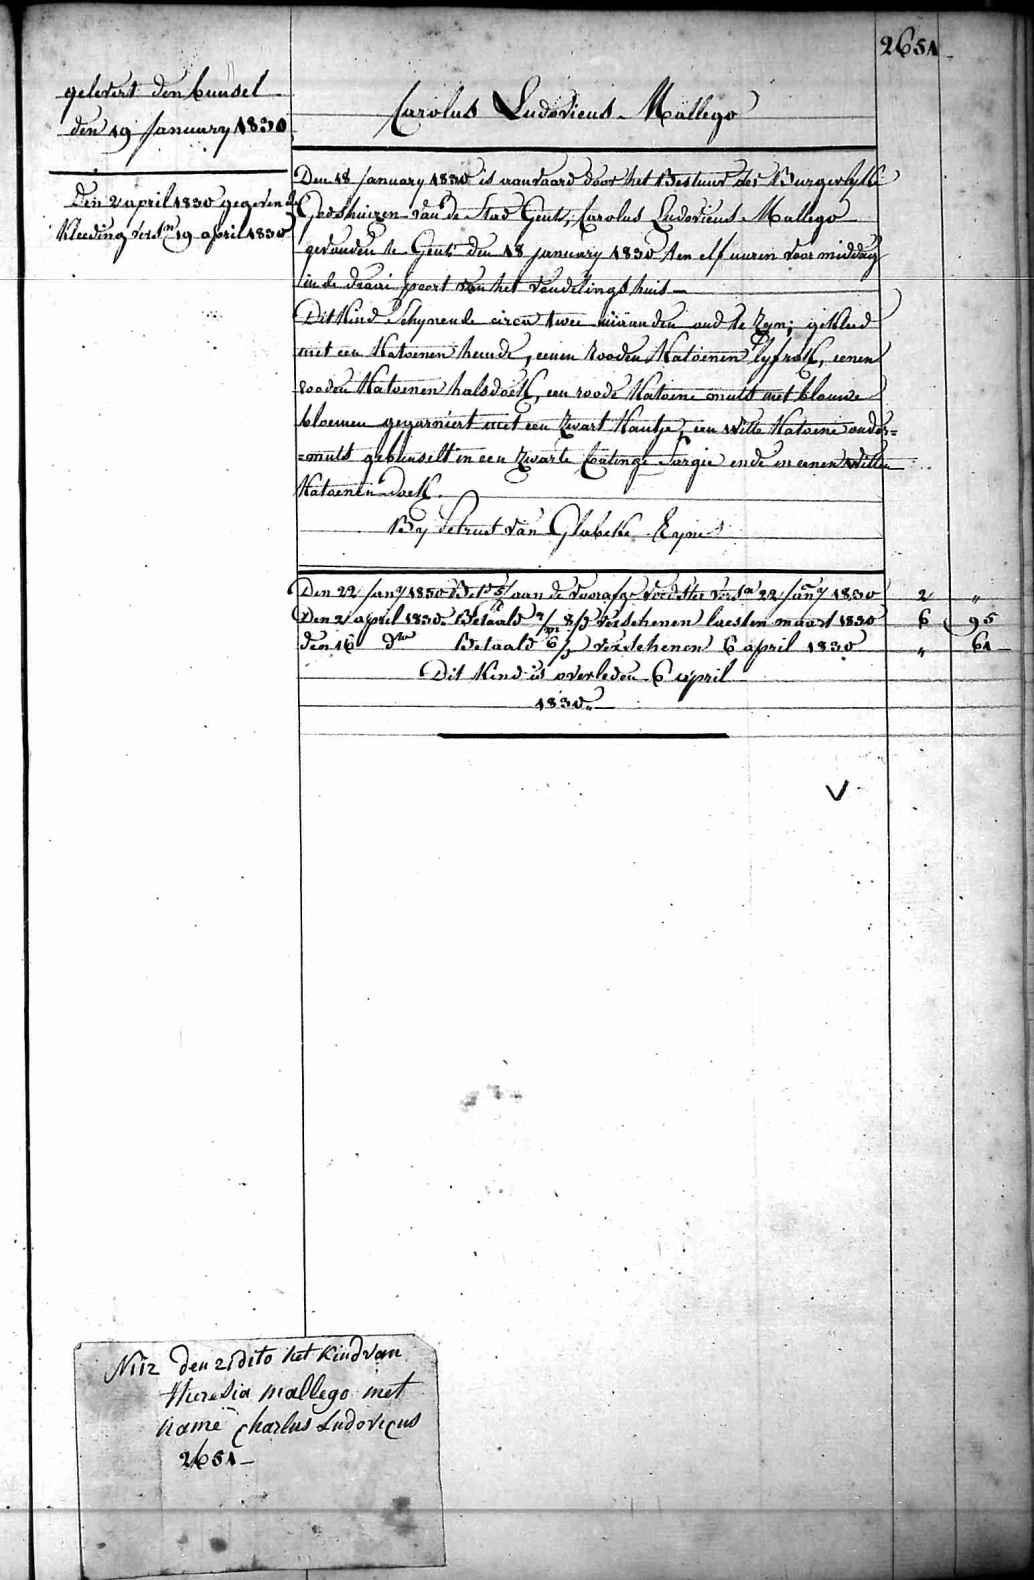 2651
gelevert den bunsel
den 19 January 1830
Den 2 april 1830 gegeven de
Kleeding verst.n 19 april 1830
Carolus Ludovicus Mallego
Den 18 January 1830 is aanvaard door het Bestuur der Burgerlyke
Godshuizen van de Stad Gent, Carolus Ludovicus Mallego
gevonden te Gent den 18 january 1830 ten elf uuren voor middag
in de draai poort van het vondelingshuis
Dit Kind schynende circa twee maanden oud te Zyn; gekleed
met een Katoenen hemde, eenen rooden Katoenen lyfrok, eenen
rooden Katoenen halsdoek, een roode Katoene muts met blauwe
bloemen gegarniert met een Zwart Kantje, een Witte Katoene onder=
=muts gebunselt in een Zwarte Sargie ende in eenen Witten
Katoenen doek.
By Petrus van Glabeke Eyne
Den 22 Jan.y 1830 Bet.d aan de voorafg.e voedster verst.n 22 Jan.y 1830 2 "
Den 2 april 1830 Betaald verschenen laesten maart 1830 6 95
den 16 d.to Betaald verschenen 6 april 1830 " 61
Dit Kind is overleden 6 april
1830.
V
N 112 den 21 dito het Kind van
theresia mallego met
name charlus Ludovicus
2651